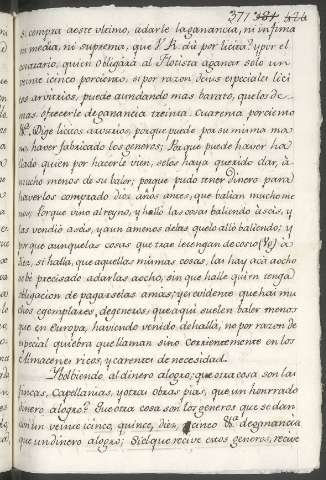 371 381 426
si compra aeste vltimo, adarle laganancia, ni infima
ni media, ni suprema, que V. R. dá por licita? y por el
contrario, quien obligará al Flotista aganar solo un
veinte icinco porciento, si por razon desus especiales lici
tos arvitrios, puede aundando mas barato, quelos de-
mas, ofrecerle deganancia treinta, cuarenta porciento
&a. Dige licitos arvitrios, porque puede por su misma ma
no haver fabricado los generos; Porque puede haver ha
llado quien por hacerle vien, selos haya querido dar, à
mucho menos de su baler; porque pudo tener dinero para
haverlos comprado diez años antes, que balian mucho me
nos; Porque vino al reyno, y halló las cosas baliendo à seis, y
las vendió aseis, y aun amenos delas quelo alló baliendo; y
porque aunquelas cosas que trae letengan de costo (Vg) à
diez, si halla, que aquellas mismas cosas, las hay acà aocho
sebé precisado adarlas aocho, sin que halle quien tenga
obligacion de pagarselas amas; yer evidente que hai mu
chos egemplares, degeneros, que aqui suelen baler menos
que en Europa, haviendo venido de hallá, no por razon de
especial quiebra que llaman sino corrientemente en los
Almacenes ricos, y carentes de necesidad.
Bolbiendo al dinero alogro; que otra cosa son las
fincas, Capellanias, yotras obras pias, que un honrrado
dinero alogro? Que otra cosa son los generos que se dan
con un veinte icinco, quince, diez, cinco &a. deganancia
que un dinero alogro; Siel que recive estos generos, recive